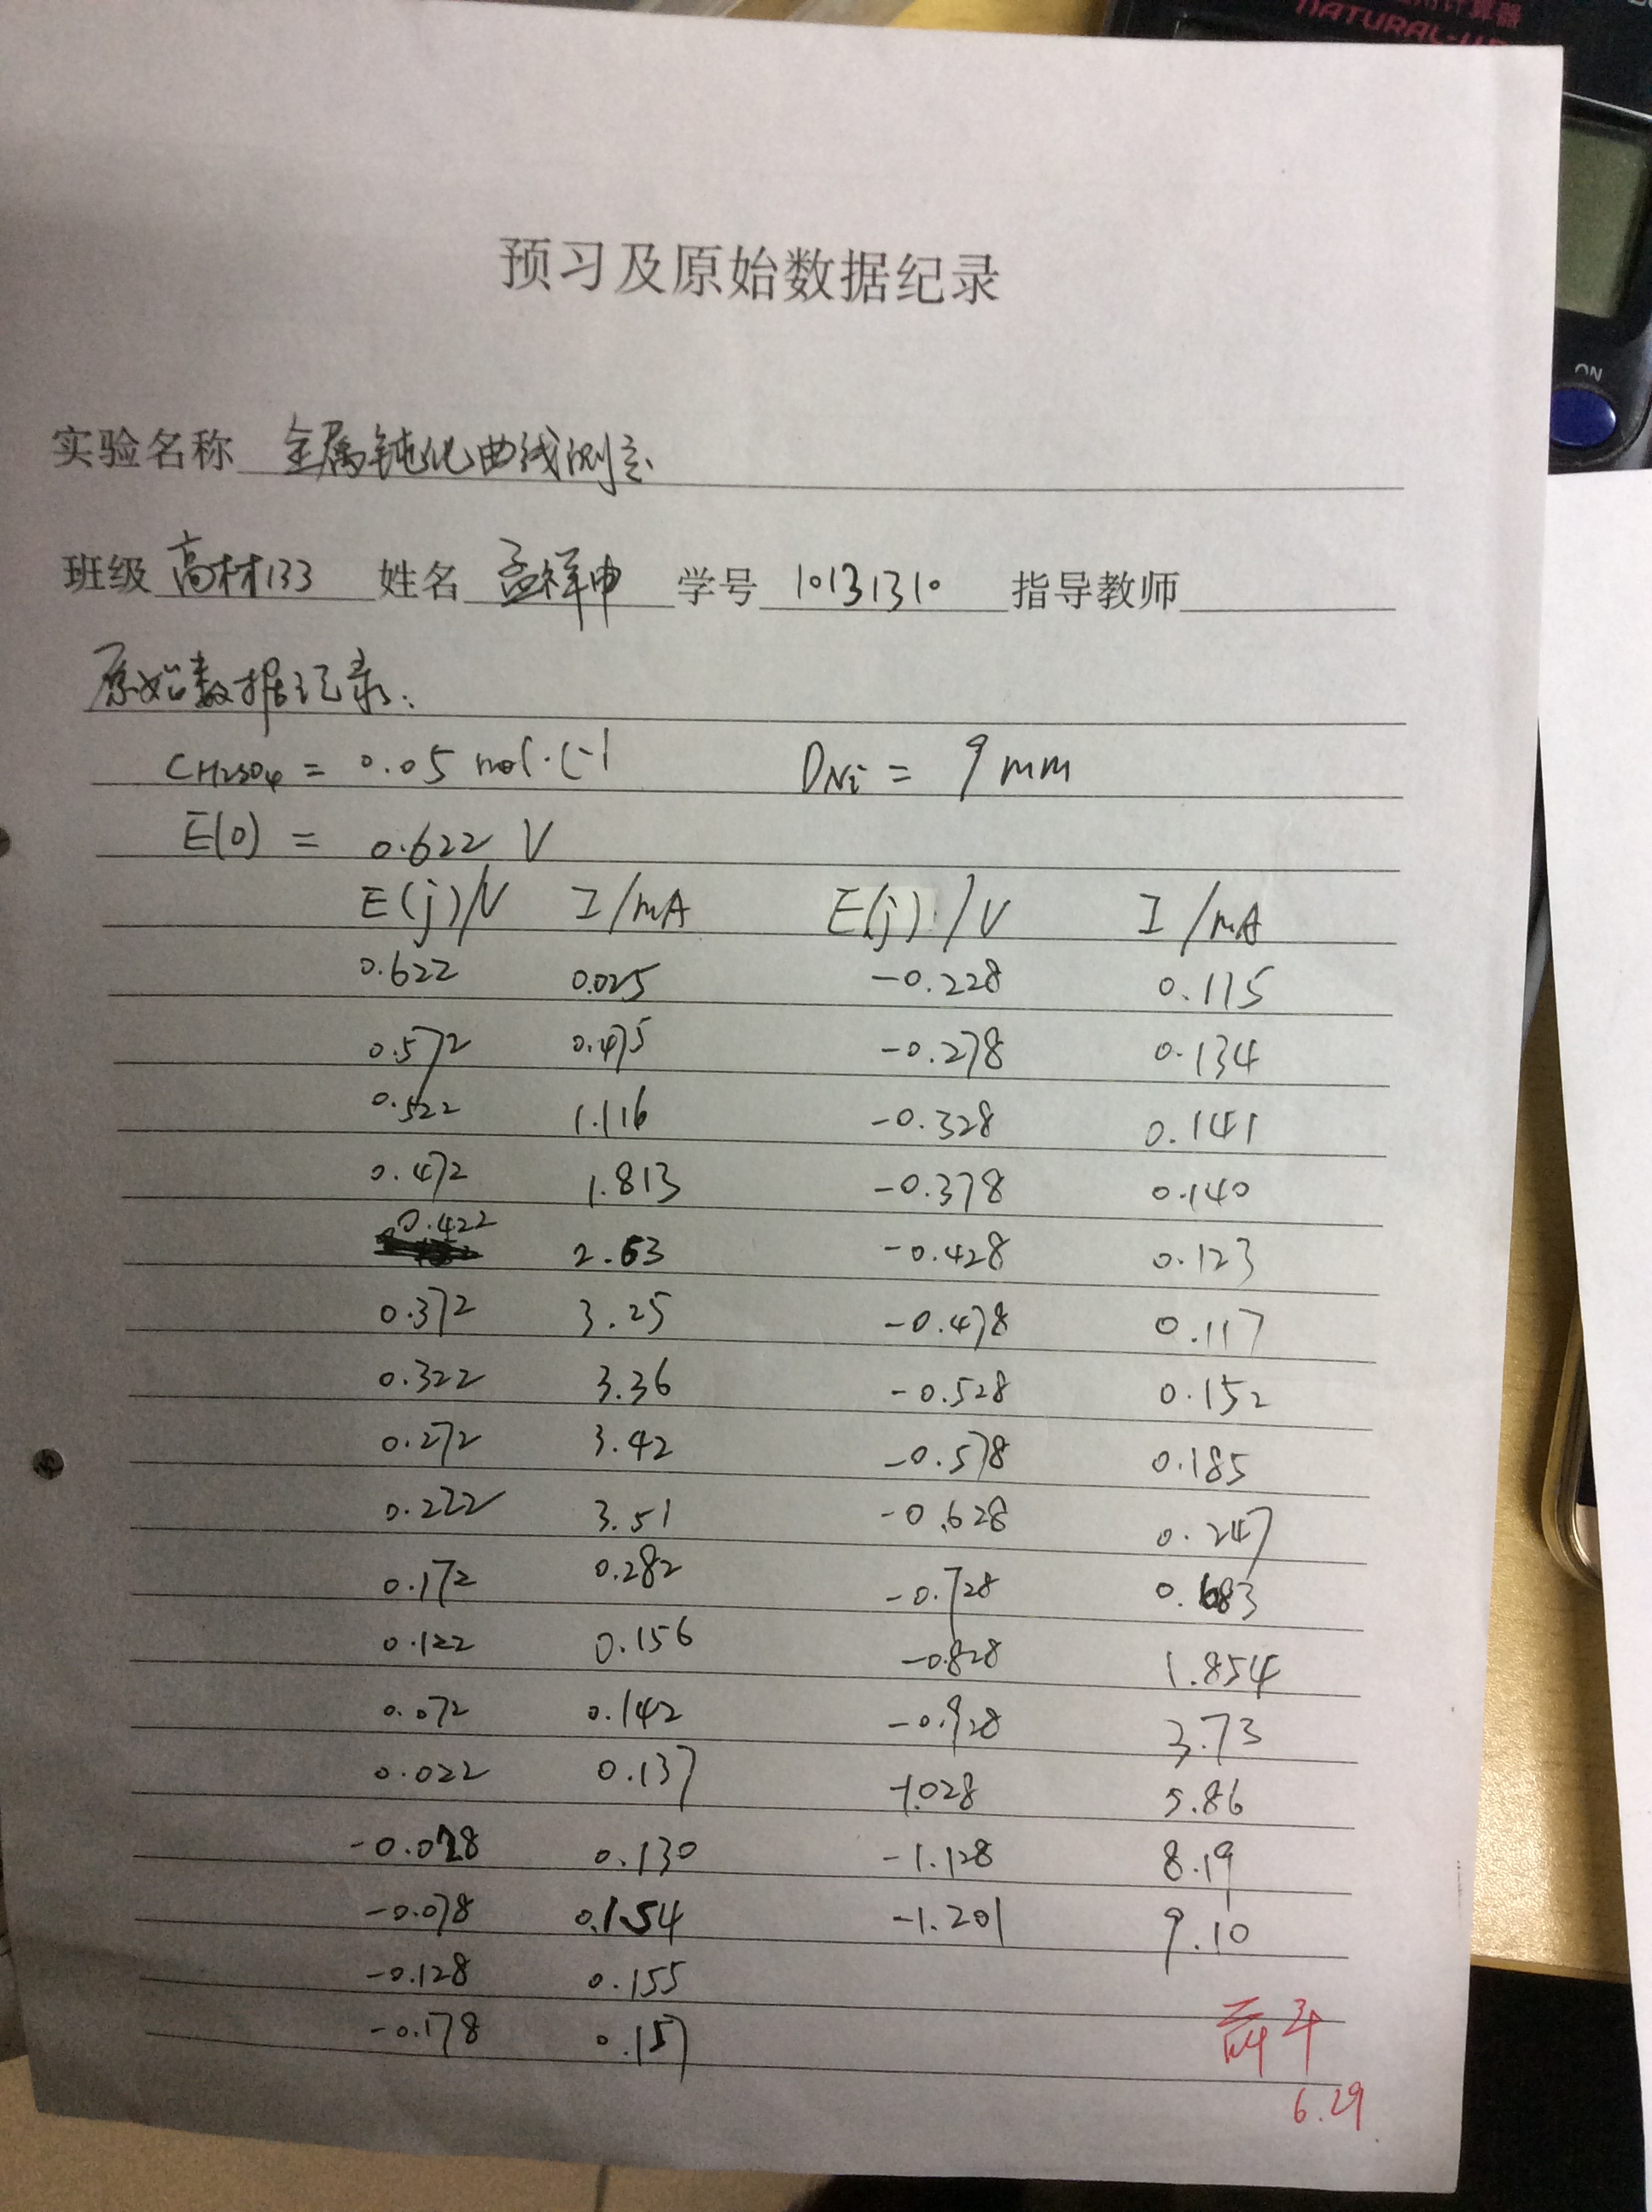 计算器
NATURAL
ON
预习及原始数据纪录
实验名称 金属钝化曲线测定
班级 高材133 姓名 孟祥申 学号 10131310 指导教师
原始数据记录:
CH2SO4 = 0.05 mol·L-1 DNi = 9 mm
E(0) = 0.622 V
E(j)/V I/mA E(j)/V I/mA
0.622 0.025 -0.228 0.115
0.572 0.475 -0.278 0.134
0.522 1.116 -0.328 0.141
0.472 1.813 -0.378 0.140
0.422 2.63 -0.428 0.123
0.372 3.25 -0.478 0.117
0.322 3.36 -0.528 0.152
0.272 3.42 -0.578 0.185
0.222 3.51 -0.628 0.247
0.172 0.282 -0.728 0.683
0.122 0.156 -0.828 1.854
0.072 0.142 -0.928 3.73
0.022 0.137 -1.028 5.86
-0.028 0.130 -1.128 8.19
-0.078 0.154 -1.201 9.10
-0.128 0.155
-0.178 0.157
6.29